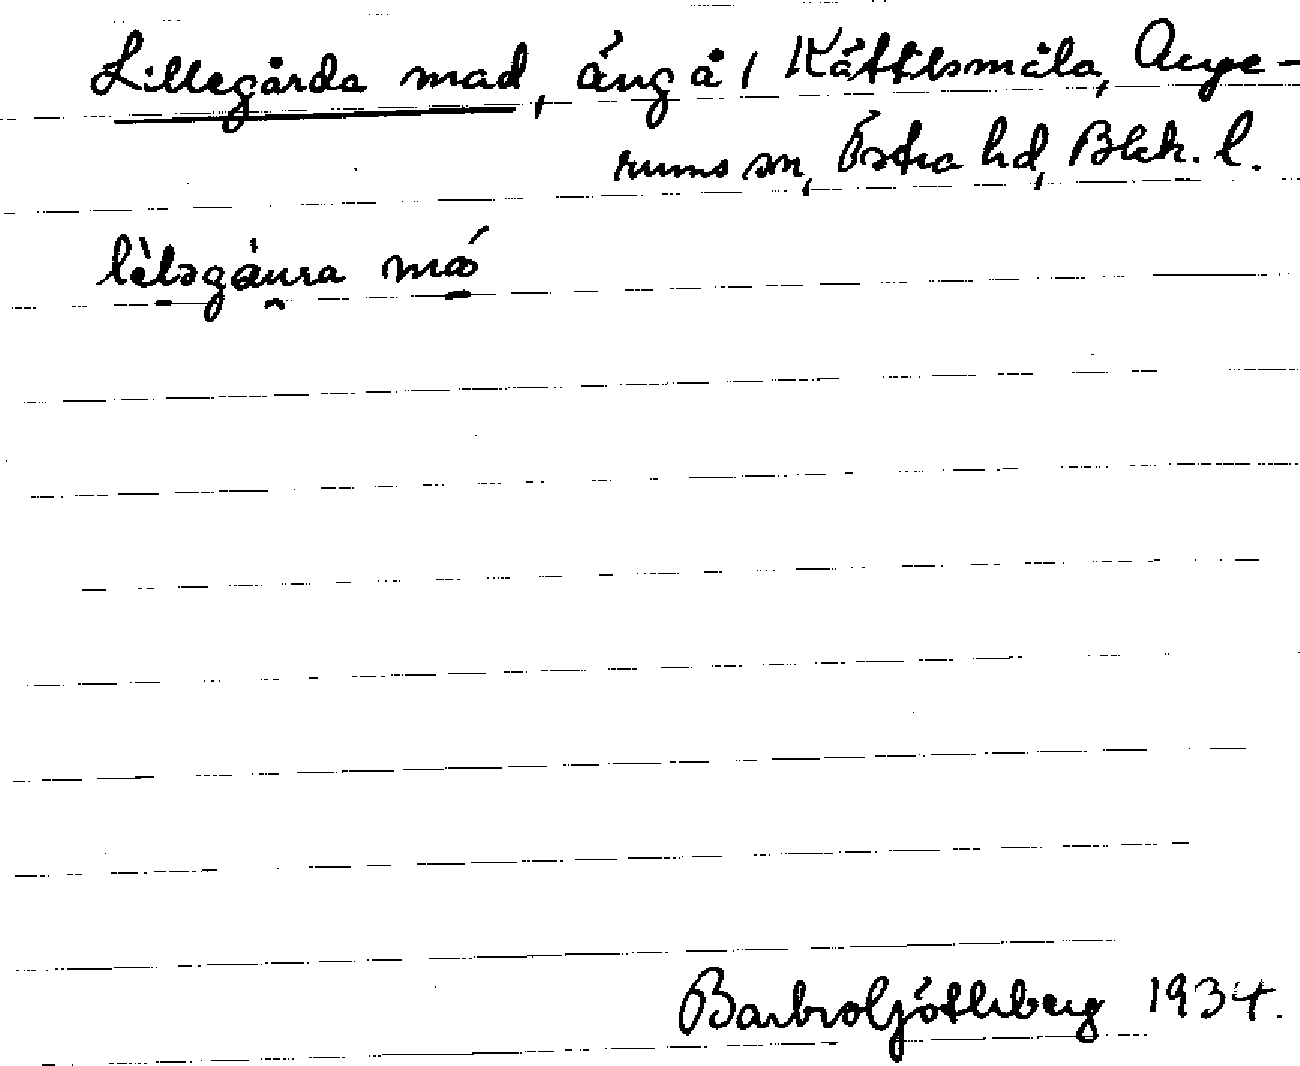 Lillegårda mad, äng å 1 Kättilsmåla, Auge-
rums sn, Östra hd, Blek. l.
lèləgå̀ɯra má
Barbro Götherberg 1934.